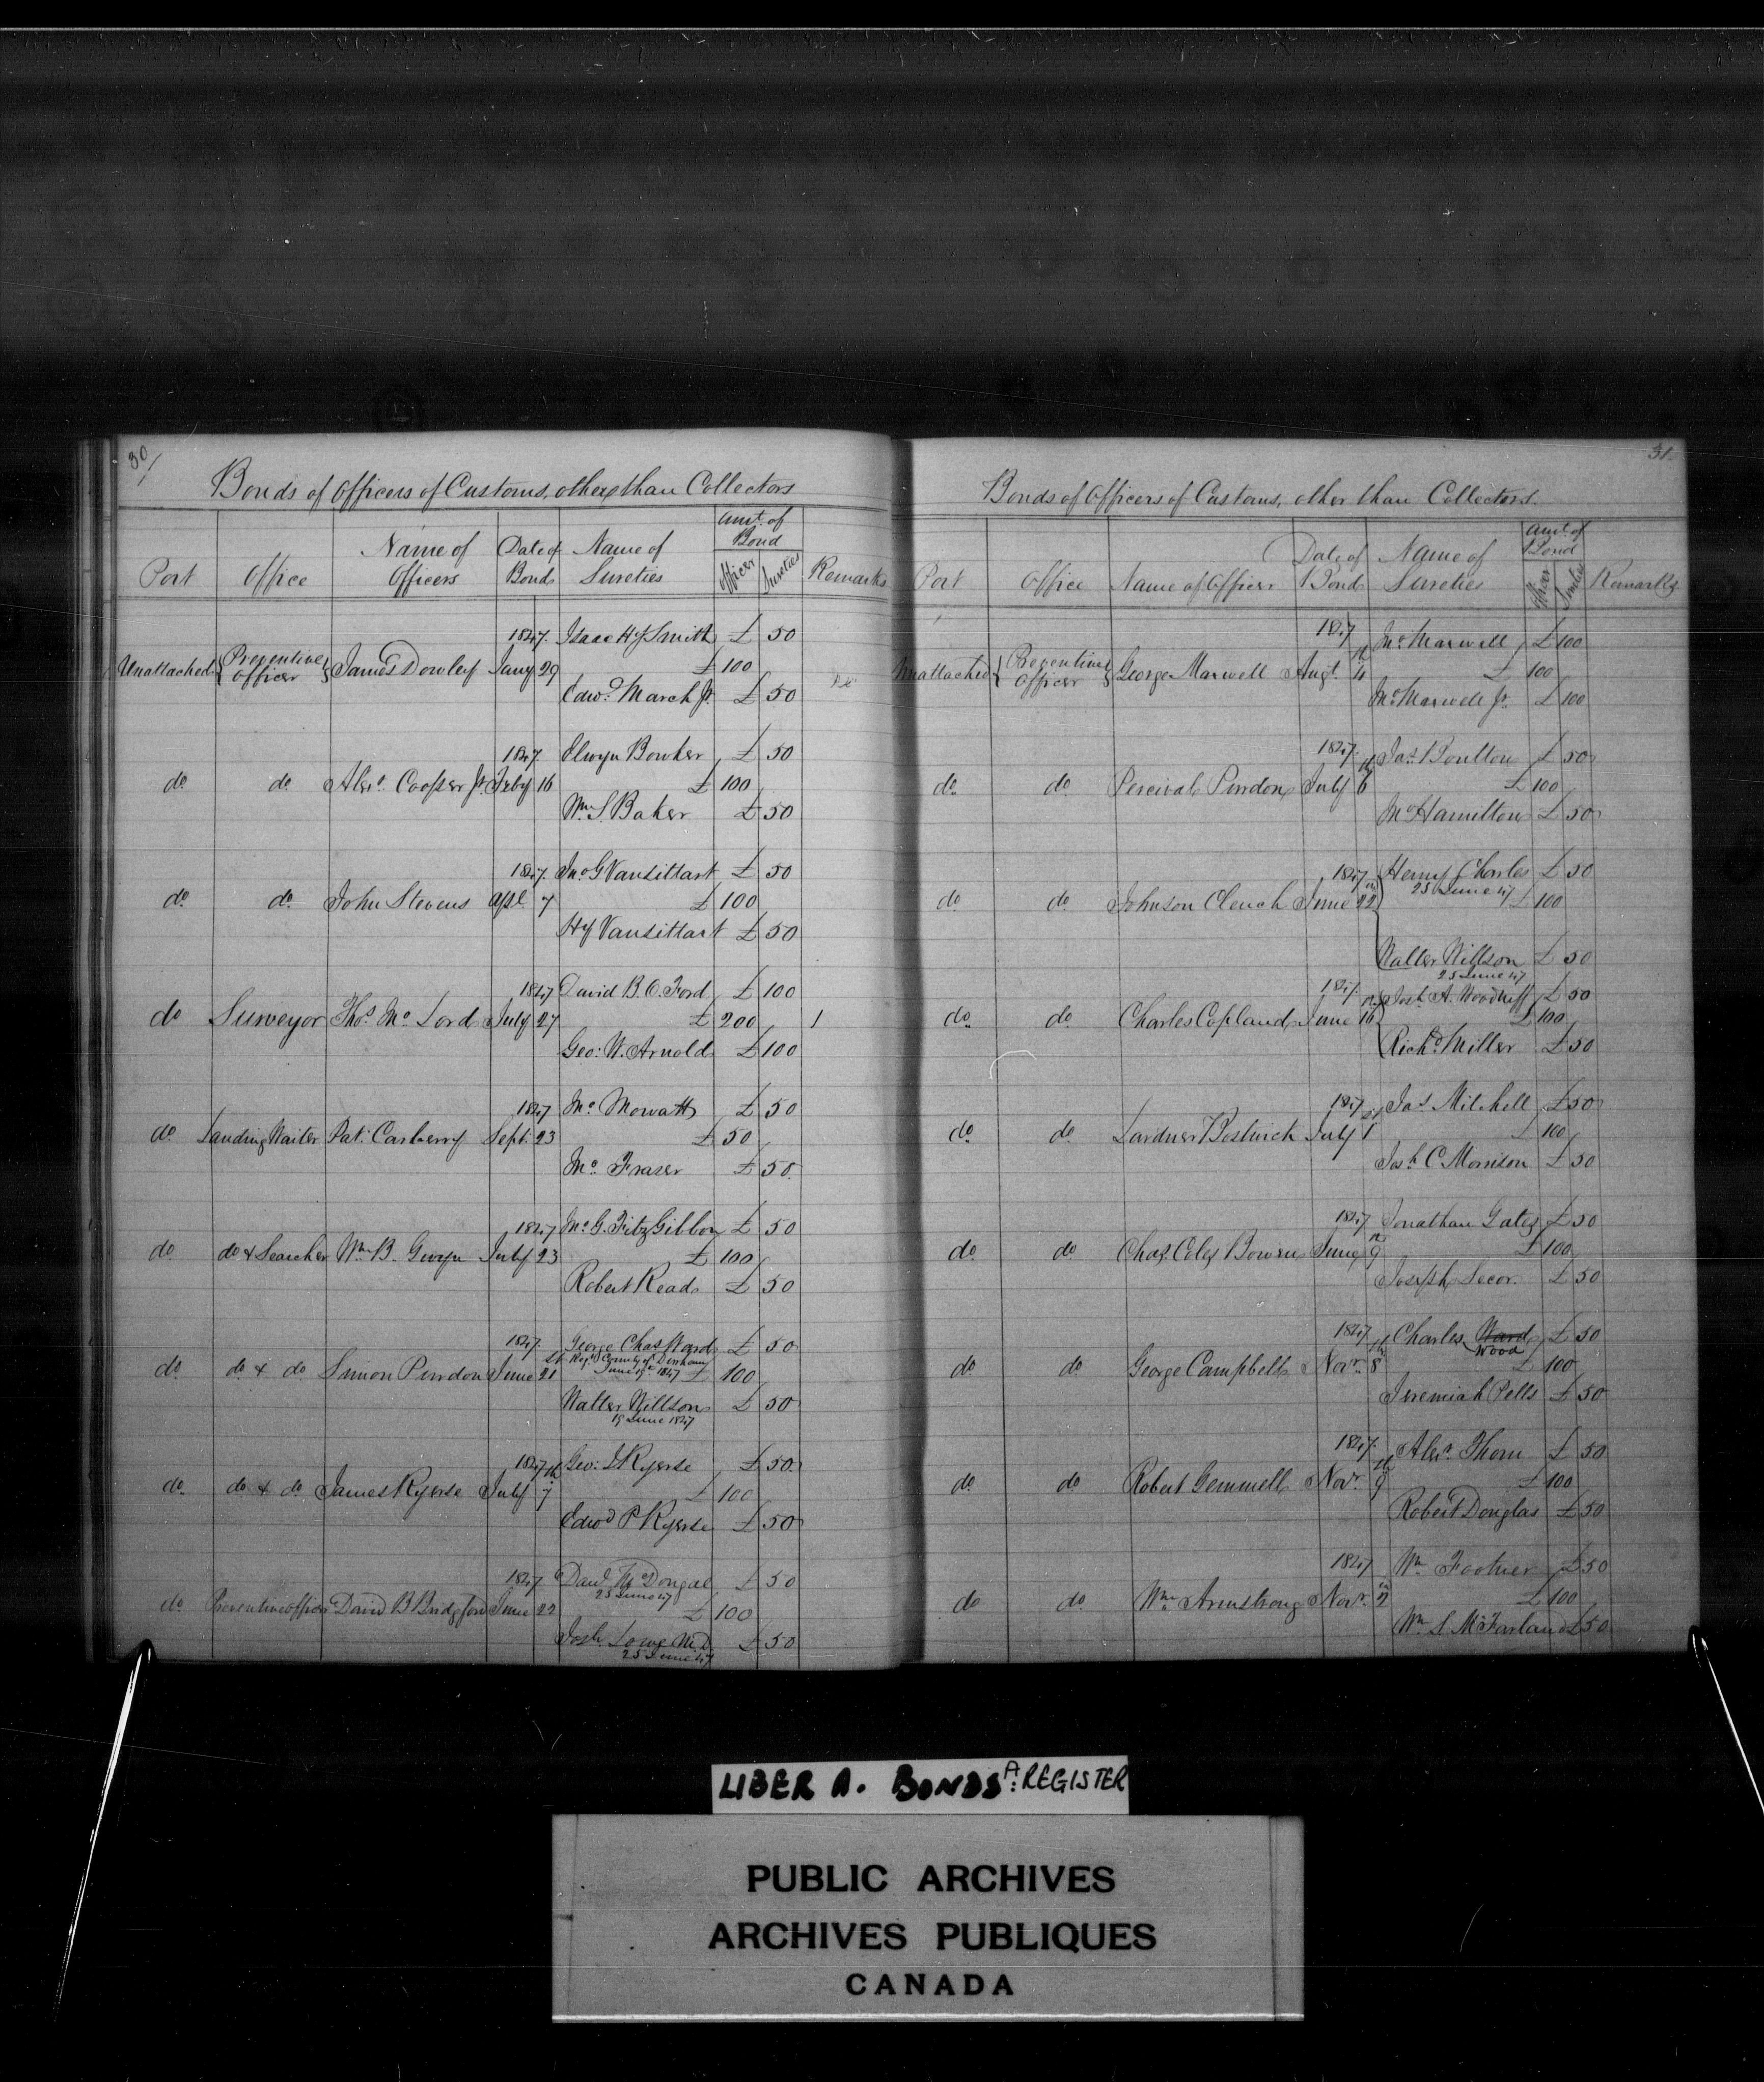 30/
Bonds of Officers of Customs, other than Collectors
Port Office Name of Officers Date of Bonds Name of Sureties Amt. of Bond Officer Sureties Remarks
1847. Isaac Hy Smith £ 50
Unattached { Preventive Officer } James Dowley Jany 29 £ 100
Edwd. March Jr. £ 50
1847. Elwyn Bowker £ 50
do do Alexr. Cooper Jr. July 16 £ 100
Wm. S. Baker £ 50
1847. Jno. G Vansittart £ 50
do do John Stevens Apl 7 £ 100
Hy Vansittart £ 50
1847 David B. O. Ford £ 100
do Surveyor Thos. Mc. Lord July 27 £ 200 1
Geo: W. Arnold £ 100
1847 Jno. Mowatt £ 50
do Landing Waiter Pat. Carberry Sept. 23 £ 50
Jno. Fraser £ 50.
1847 Jno. G. Fitz Gibbon £ 50
do do & Searcher Wm. B. Gwyn July 23 £ 100
Robert Reads £ 50
1847. George Chas Ward £ 50
Regr. County of Durham
do do & do Simon Purdon June 21 June 19 1847 £ 100
Walter Willson £ 50
19 June 1847
1847 Geo: I. Ryerse £ 50.
do do & do James Ryerse July 7th £ 100
Edwd P Ryerse £ 50
1847 Danl. McDongal £ 50
25 June 47
do Preventive officer David B Bridgford June 22 £ 100
Josh. Lowe M.D. £ 50
25 June 47
31.
Bonds of Officers of Customs, other than Collectors.
Port Office Name of Officer Date of Bond Name of Sureties Amt. of Bond Officer Sureties Remarks
1847 Jno. Maxwell £ 100
Unattached { Preventive Officer } George Maxwell Augt. 4th £ 100
Jno. Maxwell Jr. £ 100
1847. Jas. Boulton £ 50
do do Percival Purdon July 6th £ 100
Jno. Hamilton £ 50
1847 Henry Charles £ 50
25 June 47
do do Johnson Clench June 22 £ 100
Walter Willson £ 50
25 June 47
1847 Josh. A. Woodruff £ 50
do do Charles Copland June 16 £ 100
Richd. Miller £ 50
1847 Jas. Mitchell £ 50
do do Lardner Bostwick July 1st £ 100
Josh. C. Morrison £ 50
1847 Jonathan Gates £ 50
do do Chas. Coley Bowen June 9 £ 100
Joseph Secor. £ 50
1847 Charles Ward £ 50
Wood
do do George Campbell Novr. 8th £ 100
Jeremiah Pells £ 50
1847. Alexr. Thom £ 50
do do Robert Gemmell Novr. 9th £ 100
Robert Douglas £ 50
1847 Wm Footner £ 50
do do Wm. Armstrong Novr. 2 £ 100
Wm. S. McFarland £ 50
LIBER A. BONDS A: REGISTER
PUBLIC ARCHIVES
ARCHIVES PUBLIQUES
CANADA